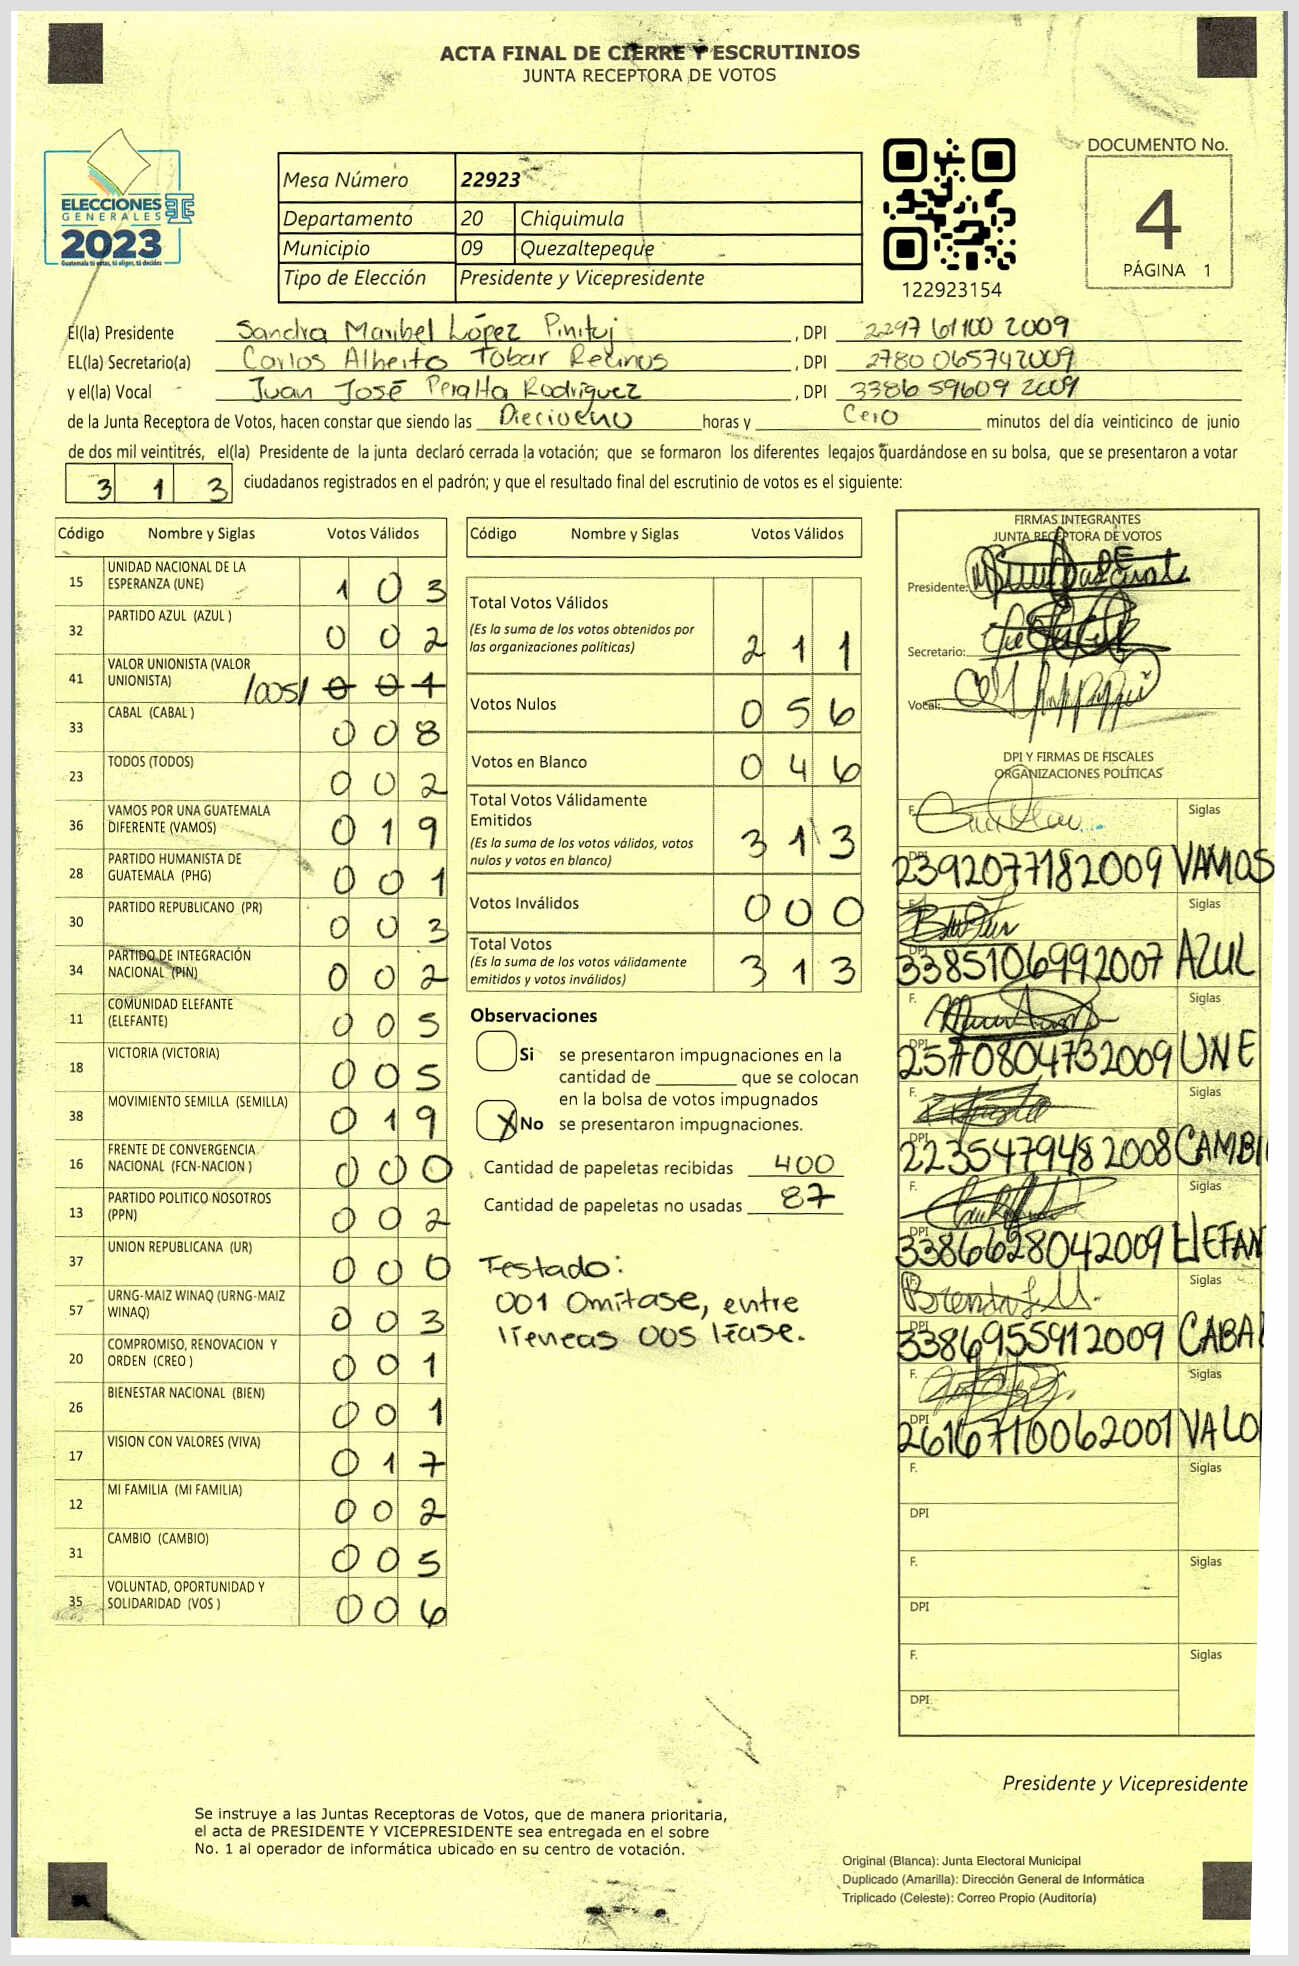 ACTA FINAL DE CIERRE Y ESCRUTINIOS
JUNTA RECEPTORA DE VOTOS
ELECCIONES
GENERALES
2023
Guatemala tú votas, tú eliges, tú decides
Mesa Número 22923
Departamento 20 Chiquimula
Municipio 09 Quezaltepeque
Tipo de Elección Presidente y Vicepresidente
122923154
DOCUMENTO No.
4
PÁGINA 1
El(la) Presidente Sandra Maribel López Pinituj, DPI 2297 61100 2009
EL(la) Secretario(a) Carlos Alberto Tobar Recinos, DPI 2780 06574 2009
y el(la) Vocal Juan José Peralta Rodríguez, DPI 3386 59609 2009
de la Junta Receptora de Votos, hacen constar que siendo las Dieciueno horas y Cero minutos del día veinticinco de junio
de dos mil veintitrés, el(la) Presidente de la junta declaró cerrada la votación; que se formaron los diferentes legajos guardándose en su bolsa, que se presentaron a votar
3 1 3 ciudadanos registrados en el padrón; y que el resultado final del escrutinio de votos es el siguiente:
Código Nombre y Siglas Votos Válidos
15 UNIDAD NACIONAL DE LA ESPERANZA (UNE) 1 0 3
32 PARTIDO AZUL (AZUL ) 0 0 2
41 VALOR UNIONISTA (VALOR UNIONISTA) /005/ 0 0 1
33 CABAL (CABAL ) 0 0 8
23 TODOS (TODOS) 0 0 2
36 VAMOS POR UNA GUATEMALA DIFERENTE (VAMOS) 0 1 9
28 PARTIDO HUMANISTA DE GUATEMALA (PHG) 0 0 1
30 PARTIDO REPUBLICANO (PR) 0 0 3
34 PARTIDO DE INTEGRACIÓN NACIONAL (PIN) 0 0 2
11 COMUNIDAD ELEFANTE (ELEFANTE) 0 0 5
18 VICTORIA (VICTORIA) 0 0 5
38 MOVIMIENTO SEMILLA (SEMILLA) 0 1 9
16 FRENTE DE CONVERGENCIA NACIONAL (FCN-NACION ) 0 0 0
13 PARTIDO POLITICO NOSOTROS (PPN) 0 0 2
37 UNION REPUBLICANA (UR) 0 0 0
57 URNG-MAIZ WINAQ (URNG-MAIZ WINAQ) 0 0 3
20 COMPROMISO, RENOVACION Y ORDEN (CREO ) 0 0 1
26 BIENESTAR NACIONAL (BIEN) 0 0 1
17 VISION CON VALORES (VIVA) 0 1 7
12 MI FAMILIA (MI FAMILIA) 0 0 2
31 CAMBIO (CAMBIO) 0 0 5
35 VOLUNTAD, OPORTUNIDAD Y SOLIDARIDAD (VOS ) 0 0 6
Código Nombre y Siglas Votos Válidos
Total Votos Válidos 2 1 1
(Es la suma de los votos obtenidos por
las organizaciones políticas)
Votos Nulos 0 5 6
Votos en Blanco 0 4 6
Total Votos Válidamente
Emitidos 3 1 3
(Es la suma de los votos válidos, votos
nulos y votos en blanco)
Votos Inválidos 0 0 0
Total Votos 3 1 3
(Es la suma de los votos válidamente
emitidos y votos inválidos)
Observaciones
Si se presentaron impugnaciones en la
cantidad de ________ que se colocan
en la bolsa de votos impugnados
X No se presentaron impugnaciones.
Cantidad de papeletas recibidas 400
Cantidad de papeletas no usadas 87
Testado:
001 Omitase, entre
líeneas 005 léase.
FIRMAS INTEGRANTES
JUNTA RECEPTORA DE VOTOS
Presidente:
Secretario:
Vocal:
DPI Y FIRMAS DE FISCALES
ORGANIZACIONES POLÍTICAS
F. Siglas
DPI 2392077182009 VAMOS
F. Siglas
DPI 3385106992007 AZUL
F. Siglas
DPI 0804732009 UNE
F. Siglas
DPI 2235479482008 CAMBI
F. Siglas
DPI 3386628042009 ELEFAN
F. Brenda Siglas
DPI 3386955912009 CABA
F. Siglas
DPI 2616710062001 VALO
F. Siglas
DPI
F. Siglas
DPI
F. Siglas
DPI
Presidente y Vicepresidente
Se instruye a las Juntas Receptoras de Votos, que de manera prioritaria,
el acta de PRESIDENTE Y VICEPRESIDENTE sea entregada en el sobre
No. 1 al operador de informática ubicado en su centro de votación.
Original (Blanca): Junta Electoral Municipal
Duplicado (Amarilla): Dirección General de Informática
Triplicado (Celeste): Correo Propio (Auditoría)